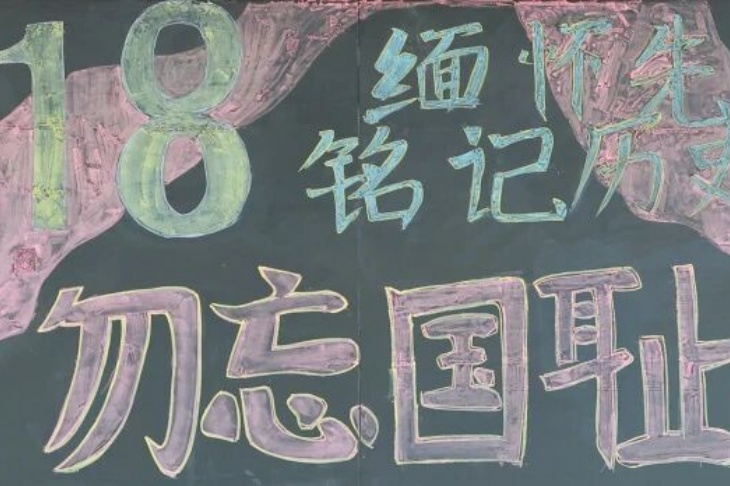 18
缅怀先
铭记历史
勿忘国耻